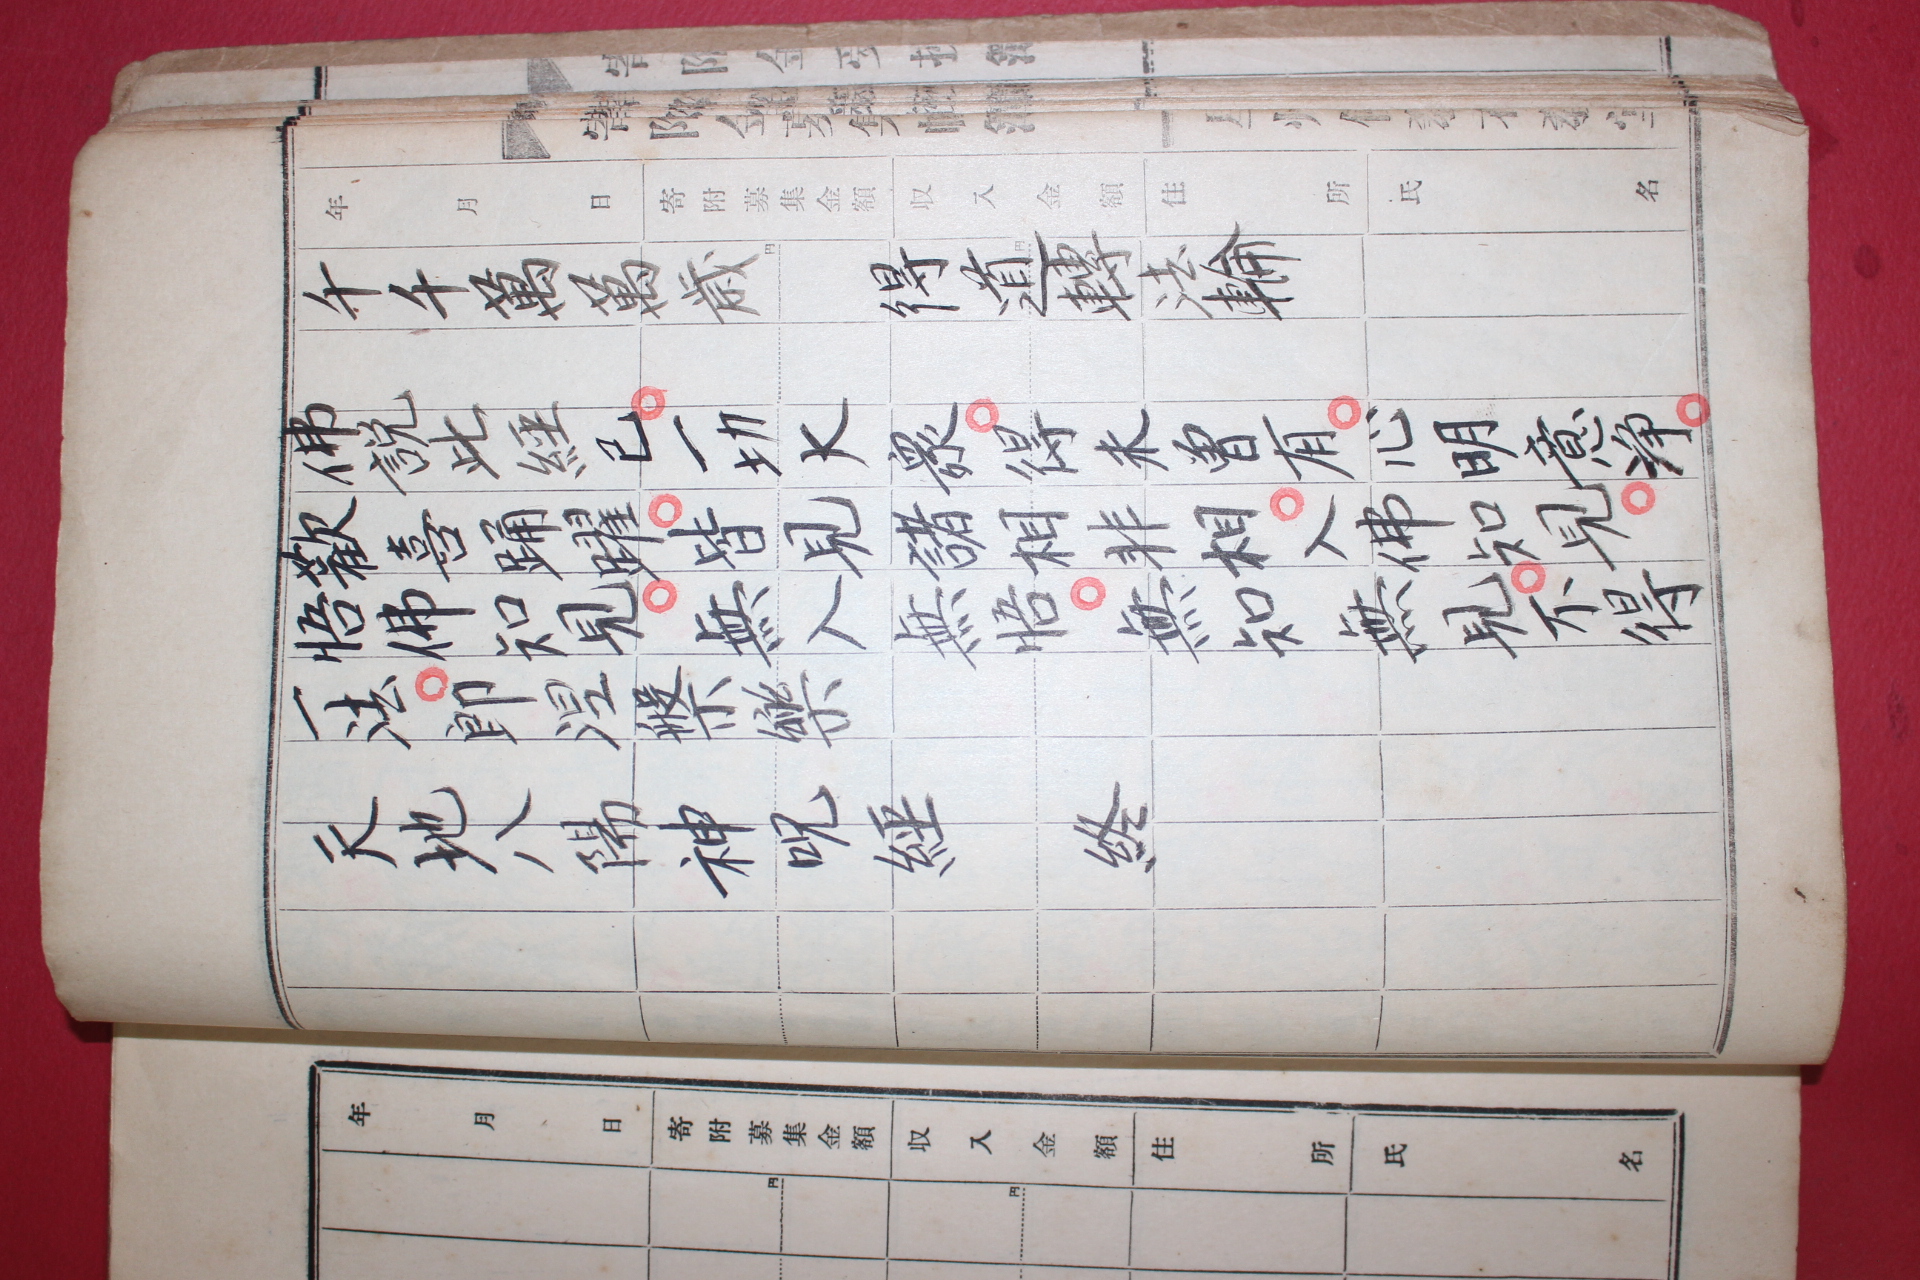 年月日 寄附募集金額 収入金額 住所 氏名
円 円
千千萬萬歲 得道轉法輪
佛説此經已一切大衆得未曾有心明意淨
歡喜踊躍皆見諸相非相入佛知見
悟佛知見無入無悟無知無見不得
一法即涅槃樂
天地八陽神呪經 終
年月日 寄附募集金額 収入金額 住所 氏名
円 円